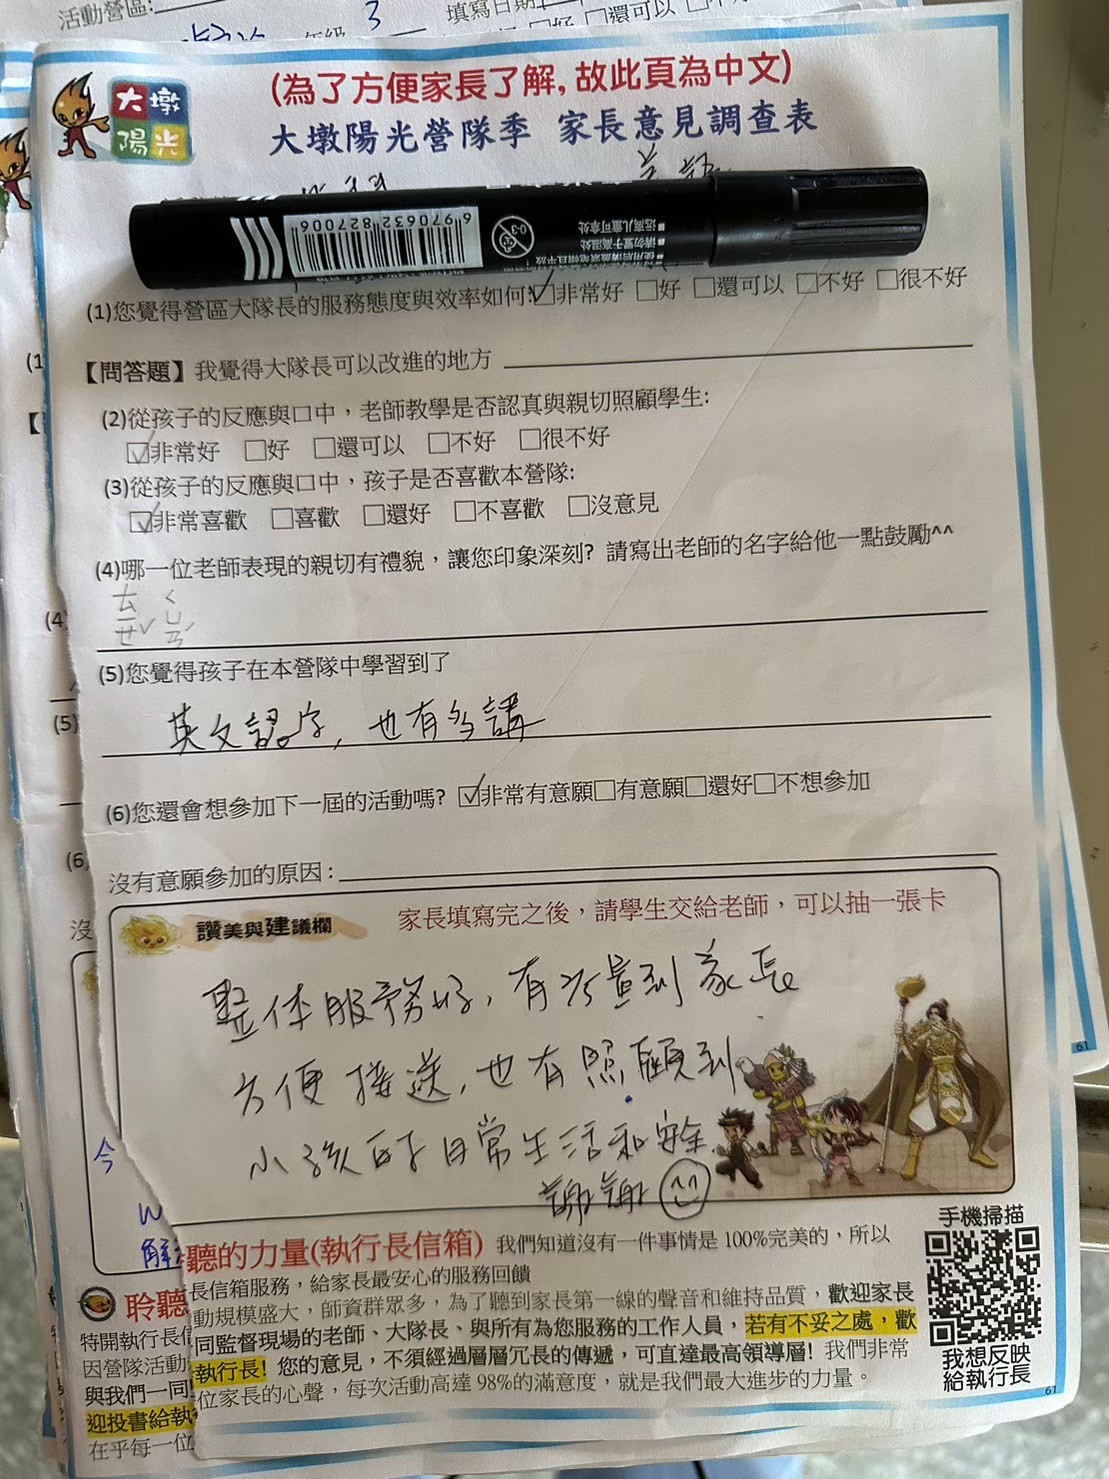 活動營區:
年級 3
填寫日期
還可以
大墩
陽光
(為了方便家長了解,故此頁為中文)
大墩陽光營隊季 家長意見調查表
6 970632 827006
0-3
远离儿童可拿处
请勿置于高温处
(1)您覺得營區大隊長的服務態度與效率如何: ☑非常好 □好 □還可以 □不好 □很不好
【問答題】我覺得大隊長可以改進的地方
(2)從孩子的反應與口中,老師教學是否認真與親切照顧學生:
☑非常好 □好 □還可以 □不好 □很不好
(3)從孩子的反應與口中,孩子是否喜歡本營隊:
☑非常喜歡 □喜歡 □還好 □不喜歡 □沒意見
(4)哪一位老師表現的親切有禮貌,讓您印象深刻? 請寫出老師的名字給他一點鼓勵^^
ㄊㄝˇ ㄑㄩㄢˊ
(5)您覺得孩子在本營隊中學習到了
英文認字, 也有多講
(6)您還會想參加下一屆的活動嗎? ☑非常有意願□有意願□還好□不想參加
沒有意願參加的原因:
讚美與建議欄 家長填寫完之後,請學生交給老師,可以抽一張卡
整体服務好, 有考量到家長
方便接送, 也有照顧到
小孩的日常生活和安全.
謝謝
手機掃描
我想反映
給執行長
聽的力量(執行長信箱) 我們知道沒有一件事情是 100%完美的,所以
長信箱服務,給家長最安心的服務回饋
動規模盛大,師資群眾多,為了聽到家長第一線的聲音和維持品質,歡迎家長
同監督現場的老師、大隊長、與所有為您服務的工作人員,若有不妥之處,歡
執行長! 您的意見,不須經過層層冗長的傳遞,可直達最高領導層! 我們非常
位家長的心聲,每次活動高達 98%的滿意度,就是我們最大進步的力量。
61
(1
【
(4
(5)
(6
沒
今
W
解
聆聽
特開執行長信
因營隊活動
與我們一同
迎投書給執
在乎每一位
61